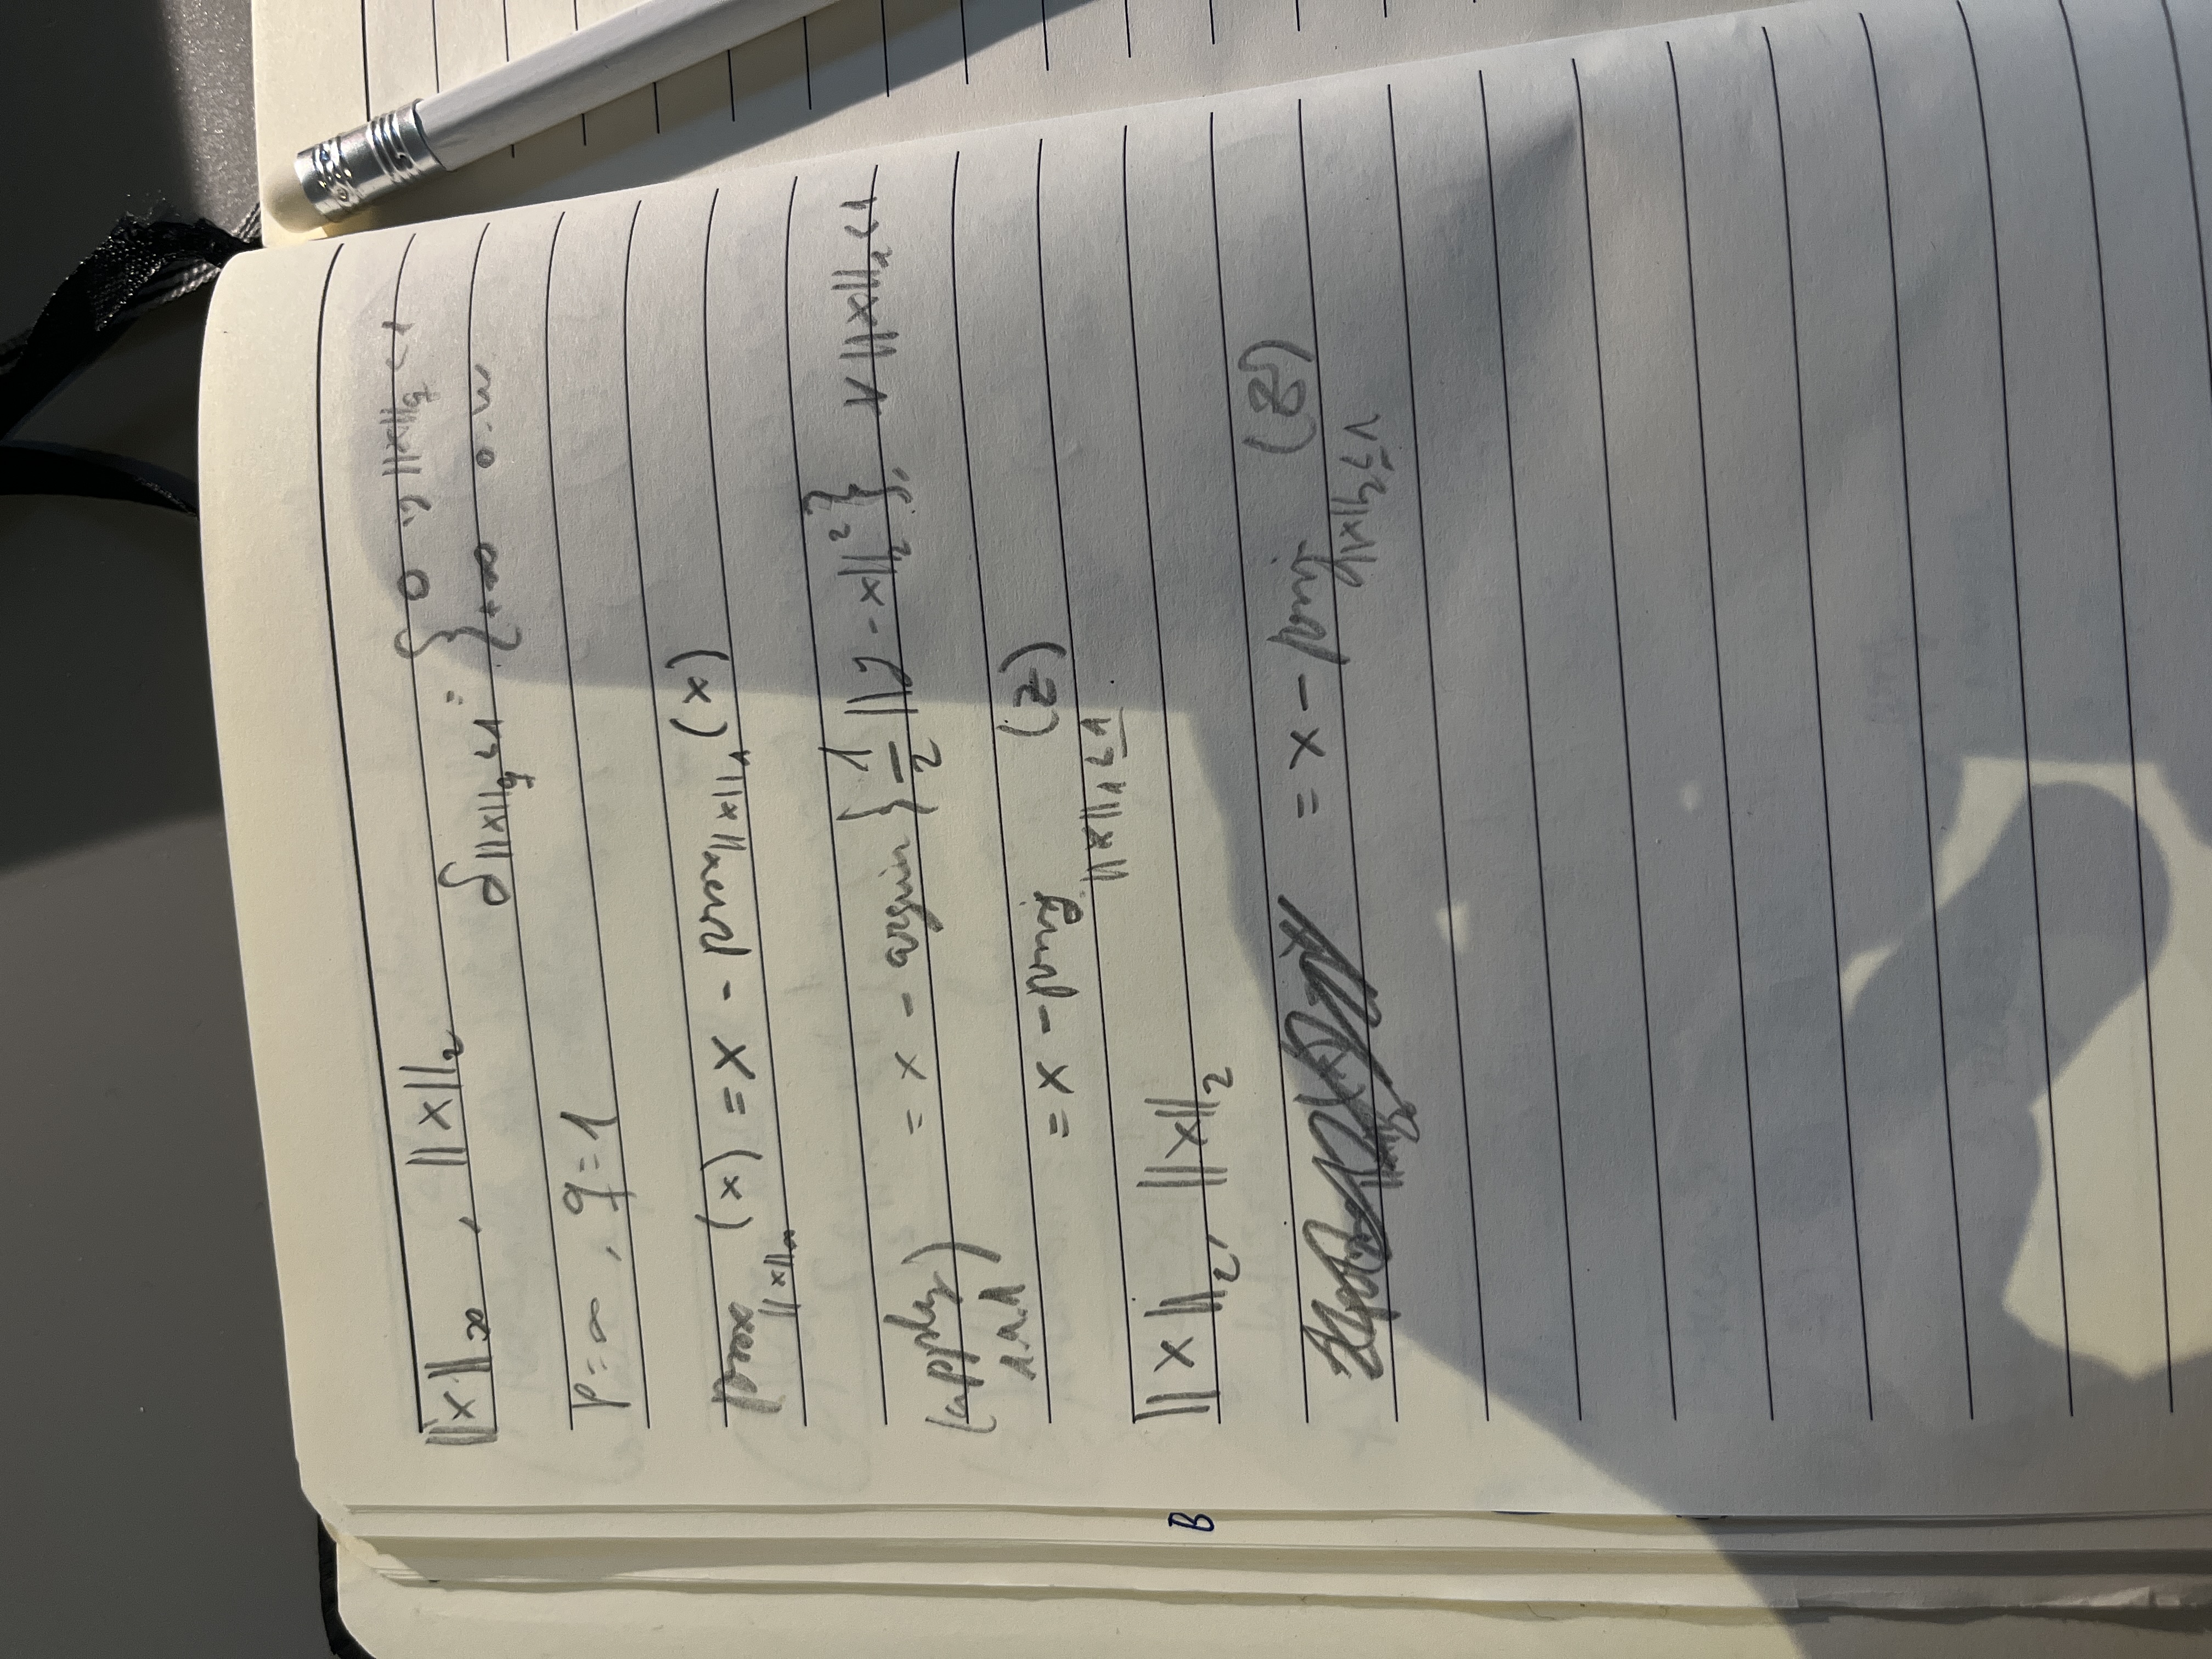 ||x||∞ , ||x||₂
δ_{||x||_q ≤ 1} = { 0 if ||x||_q < 1
+∞ o.w
p = ∞ , q = 1
prox_{||x||∞} (x) = x - prox_{||x||₁} (x)
(apply 1.a.1) = x - argmin { 1/2 ||y - x||₂² }, ∀ ||x||₁ < 1
= x - proj_{||x||₁ ≤ 1} (z)
B ||x||₂, ||x||₂
= x - proj_{||x||₂ ≤ 1} (z)